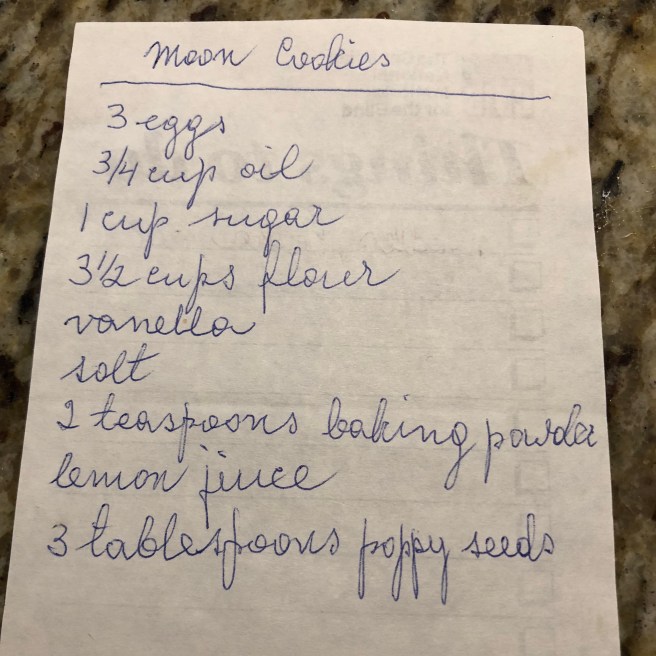 Moon Cookies
3 eggs
3/4 cup oil
1 cup sugar
3 1/2 cups flour
vanella
salt
2 teaspoons baking powder
lemon jiuce
3 tablespoons poppy seeds